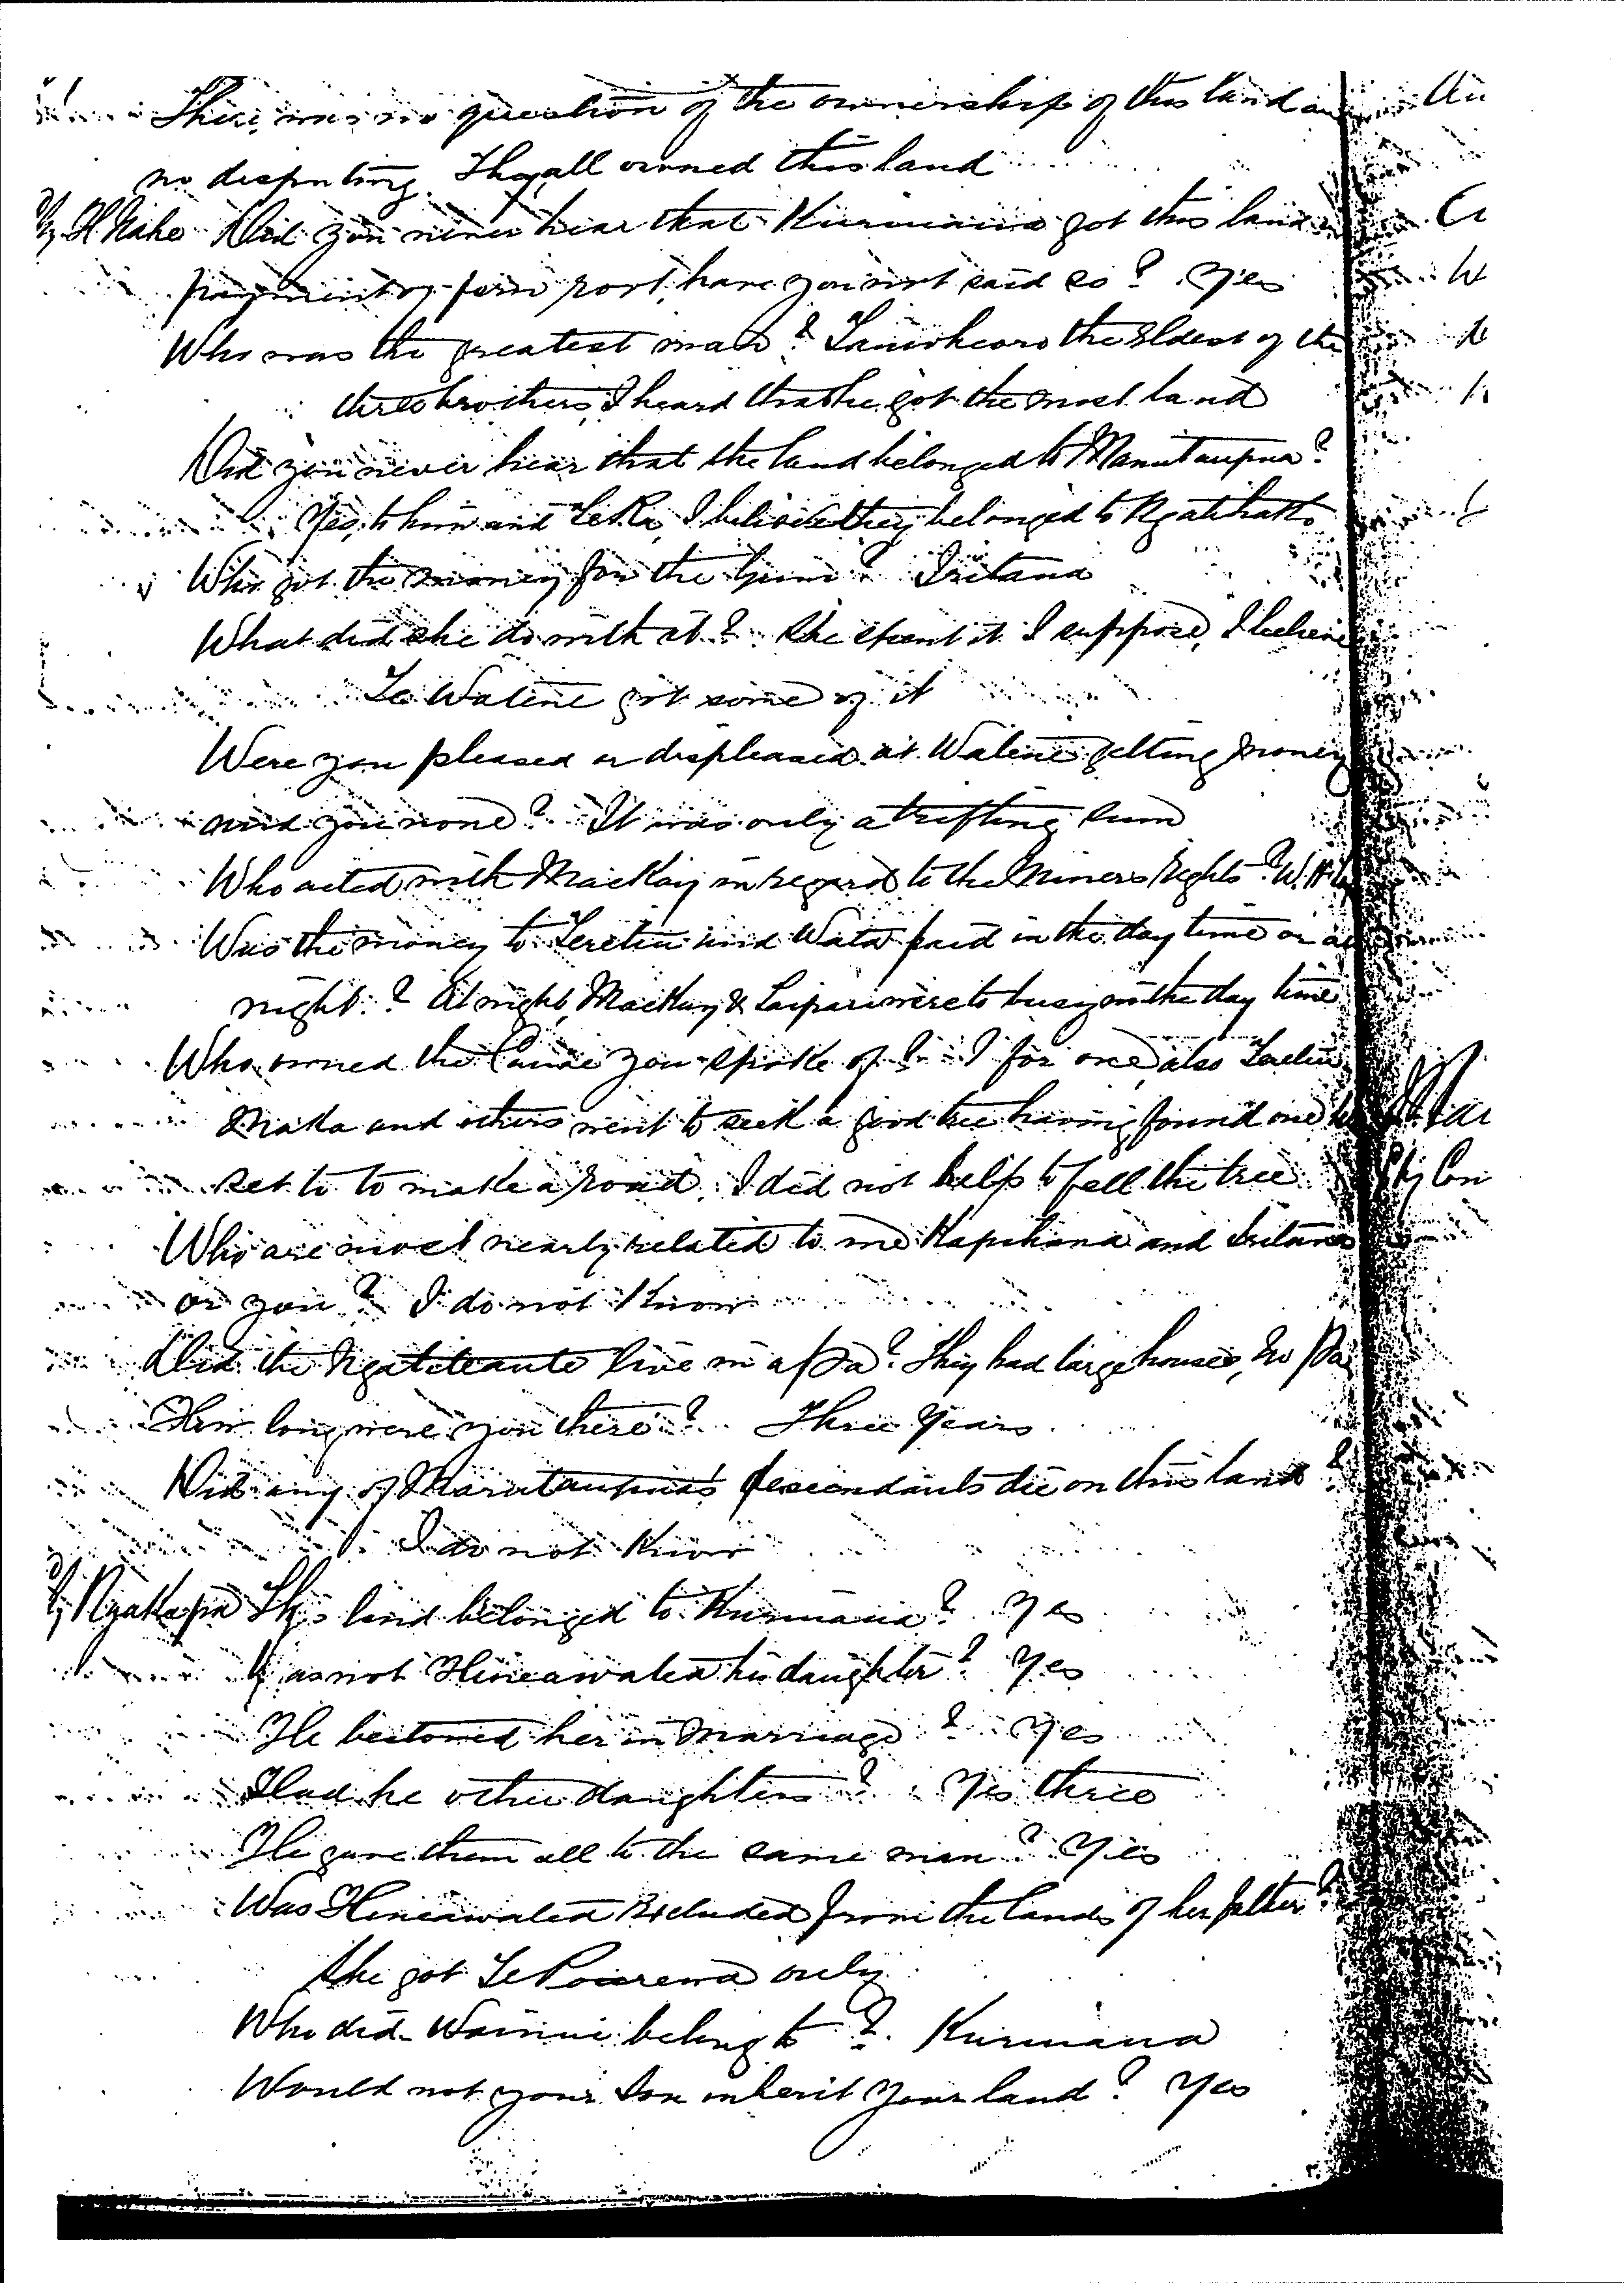 There was no question of the ownership of this land and
no disputing. They all owned this land
By H Naho Did you never hear that Kurumaua got this land in
payment of fern root, have you not said so? Yes
Who was the greatest man? Tauwheoro the Eldest of the
three brothers, I heard that he got the most land
Did you never hear that the land belonged to Manutaupua?
Yes, to him and Te Ra, I believe they belonged to Ngatihatto
Who got the money for the Gum? Iritana
What did she do with it? She spent it I suppose, I believe
Te Watene got some of it
Were you pleased or displeased at Watene getting money
and you none? It was only a trifling Sum
Who acted with Mackay in regard to the Miners Rights? W.
Was the money to Teretiu and Wata paid in the day time or at
night? At night, Mackay & Taipari were to busy in the day time
Who owned the Canoe you spoke of? I for one, also Teretiu
Maka and others went to seek a good tree having found one we
set to to make a road. I did not help to fell the tree
Who are most nearly related to me Kapihana and Iritana
or you? I do not Know
Did the Ngatiteaute live in a Pa? They had large houses, no Pa
How long were you there? Three Years
Did any of Manutaupua's descendants die on this land?
I do not Know
By Ngakapa This land belonged to Kurumaua? Yes
Was not Hineawatea his daughter? Yes
He bestowed her in Marriage? Yes
Had he other daughters? Yes three
He gave them all to the same man? Yes
Was Hineawatea Excluded from the lands of her father?
She got Te Pourewa only
Who did Wainui belong to? Kurumaua
Would not your Son inherit Your land? Yes